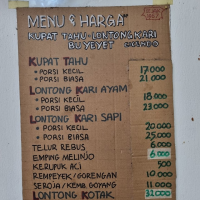 MENU & HARGA
KUPAT TAHU - LONTONG KARI
KUPAT TAHU
• PORSI KECIL 17000
• PORSI BIASA 21.000
LONTONG KARI AYAM
• PORSI KECIL 18.000
• PORSI BIASA 23.000
LONTONG KARI SAPI
• PORSI KECIL 20.000
• PORSI BIASA 25.000
TELUR REBUS 6.000
EMPING MELINJO 6.000
KERUPUK ACI 500
REMPEYEK/GORENGAN 10.000
11.000
LONTONG KOTAK 32.000